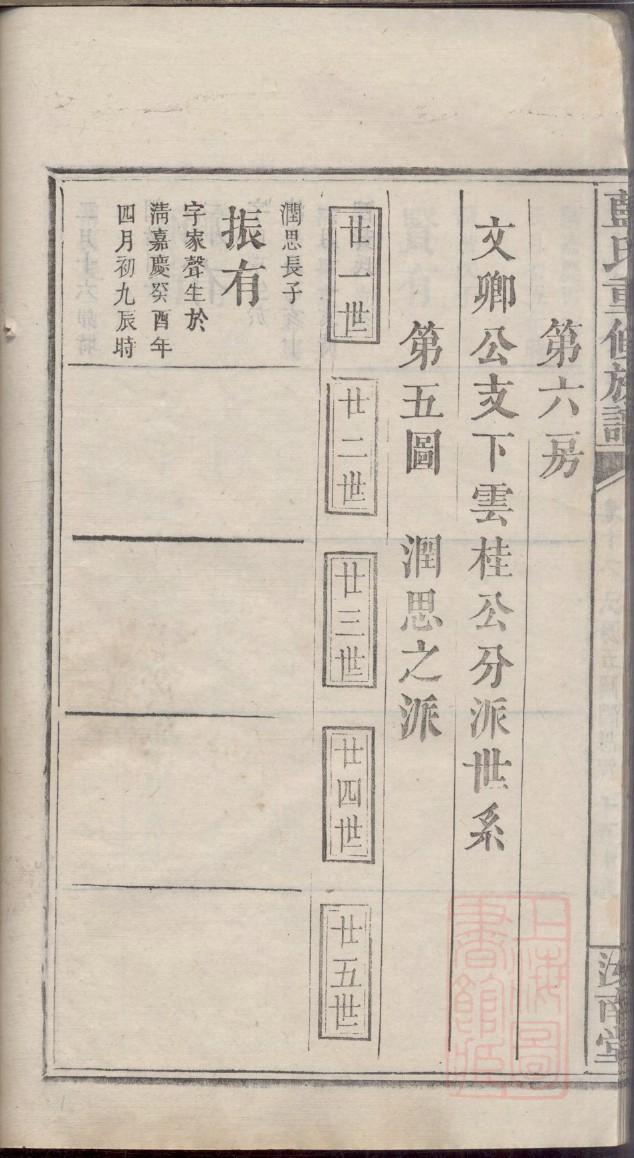 藍氏重修族譜
汝南堂
第六房
文卿公支下雲桂公分派世系
第五圖 潤思之派
廿一世
廿二世
廿三世
廿四世
廿五世
潤思長子
振有
字家聲生於
清嘉慶癸酉年
四月初九辰時
上海圖
書館藏